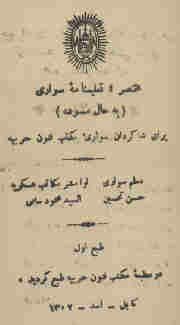 مختصر تعلیمنامهٔ سواری
( به حال منفرده )
برای شاگردان سواری مکتب فنون حربیه
معلم سواری
حسن تحسین
لوا مشر مکاتب عسکریه
السید محمود سامی
طبع اول
در مطبعهٔ مکتب فنون حربیه طبع گردید
کابل - اسد - ۱۳۰۲